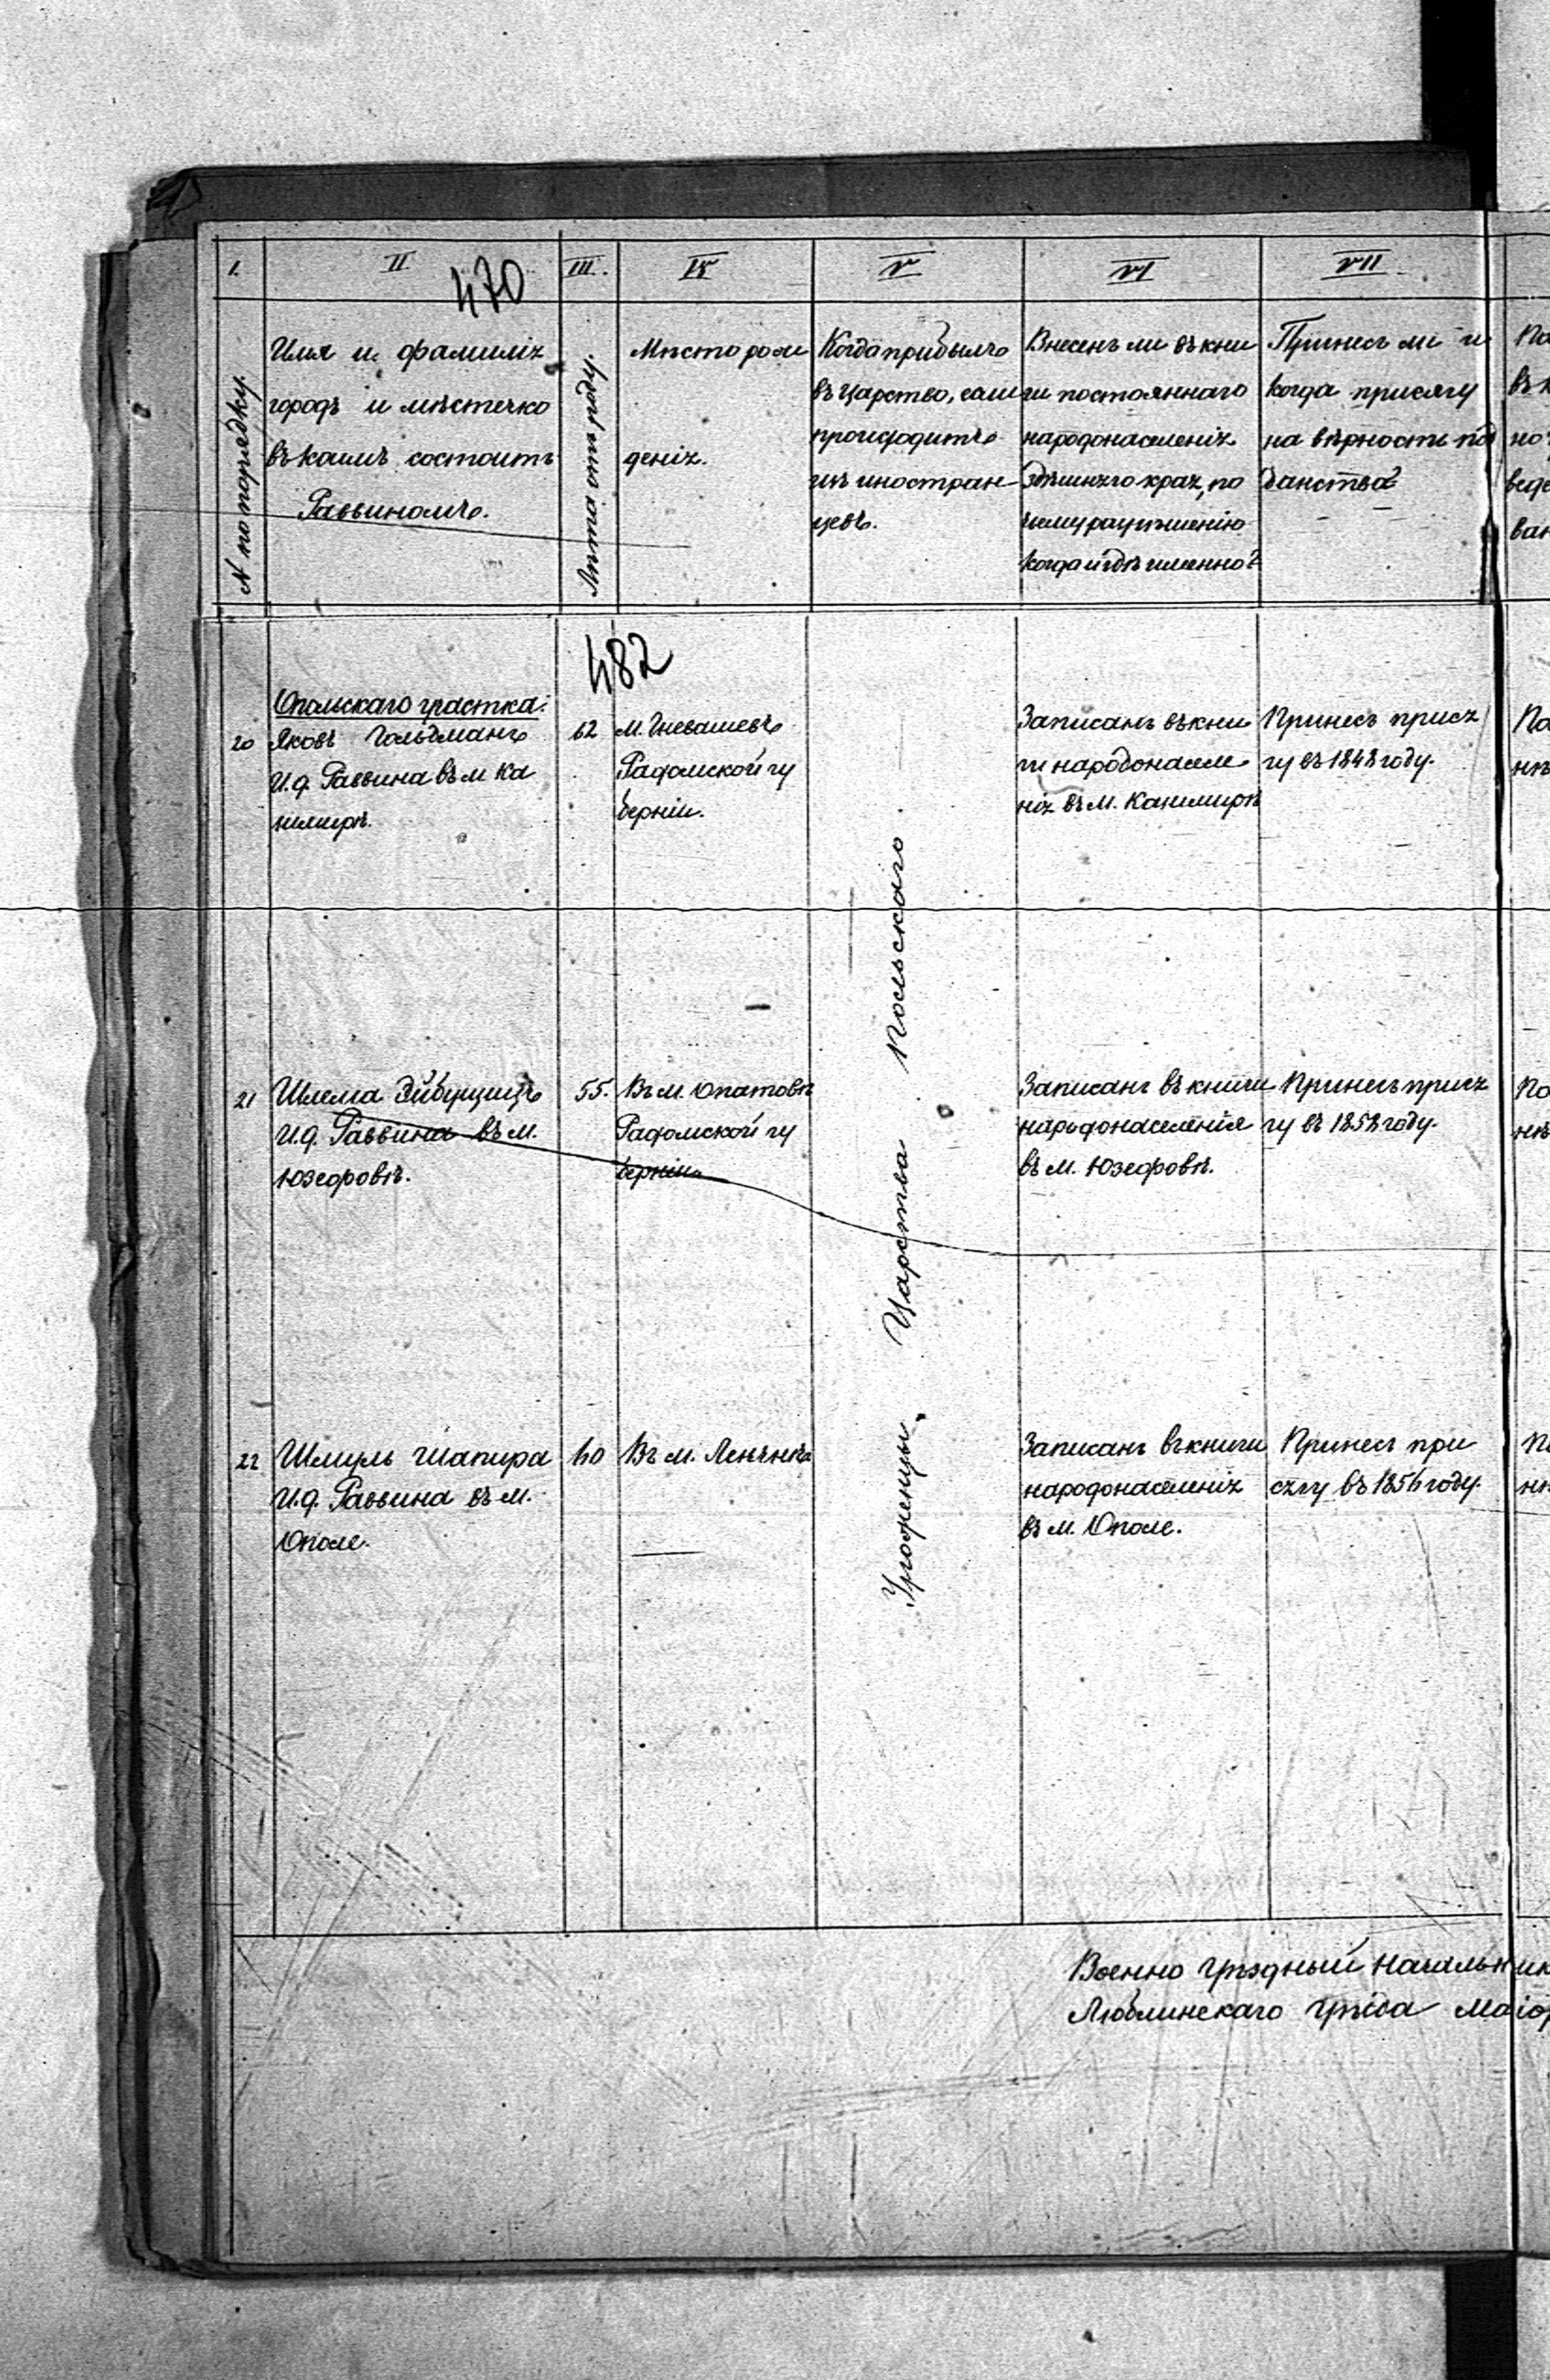 I.
II
III.
IV
V
VI
VII
470
№ по порядку.
Имя и фамилія
городъ и мѣстечко
въ коемъ состоитъ
Раввиномъ.
Мѣсто рож
деніх.
Когда прибылъ
въ Царство, если
происходитъ
изъ иностран
цевъ.
Внесенъ ли въ кни
ги постояннаго
народонаселенія
здѣшняго края, по
чему разрѣшенію
когда и гдѣ именно?
Принесъ ли и
когда присягу
на вѣрность под
данства?
482
Опольскаго участка:
20
Яковъ Гольдманъ
И.д. Раввина въ м. Ка
зимирѣ.
62
М. Гневашевъ
Радомской гу
берніи.
Записанъ въ кни
ги народонаселе
нія въ м. Казимирѣ
Принесъ прися
гу въ 1848 году.
21
Шлема Эйбушицъ
И.д. Раввина въ м.
Юзефовѣ.
55.
Въ м. Опатовѣ
Радомской гу
берніи
Записанъ въ книги
народонаселенія
въ м. Юзефовѣ.
Принесъ прися
гу въ 1858 году.
22
Шмуль Шапира
И.д. Раввина въ м.
Ополе.
60
Въ м. Ленчнѣ
Записанъ въ книги
народонаселенія
въ м. Ополе.
Принесъ при
сягу въ 1856 году.
Уроженцы Царства Польскаго
Военно уѣздный Начальник
Люблинскаго уѣзда Маіор